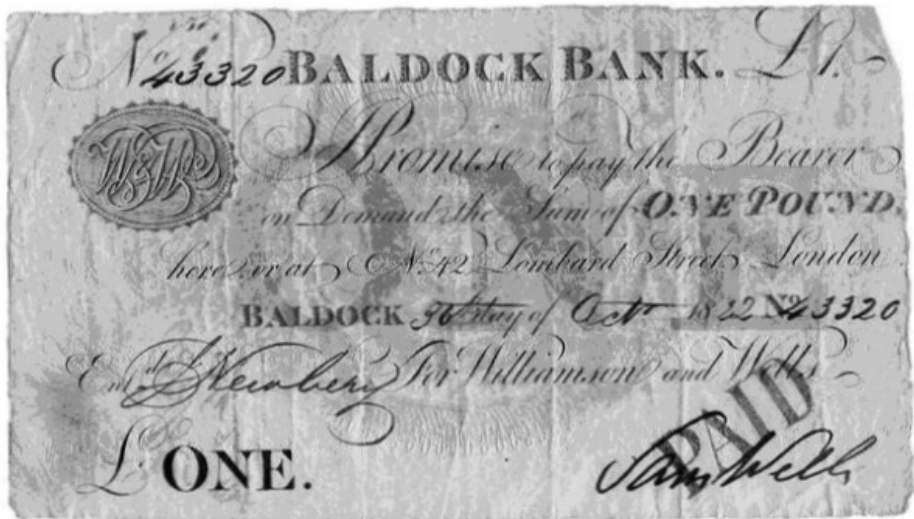 No 43320 BALDOCK BANK. £1.
W&Wc
I Promise to pay the Bearer
on Demand the Sum of ONE POUND,
here or at No. 42 Lombard Street London.
BALDOCK day of Octr 1822 No 43320
Entd Newbery For Williamson and Wells
£ ONE.
PAID
Sam Wells
ONE